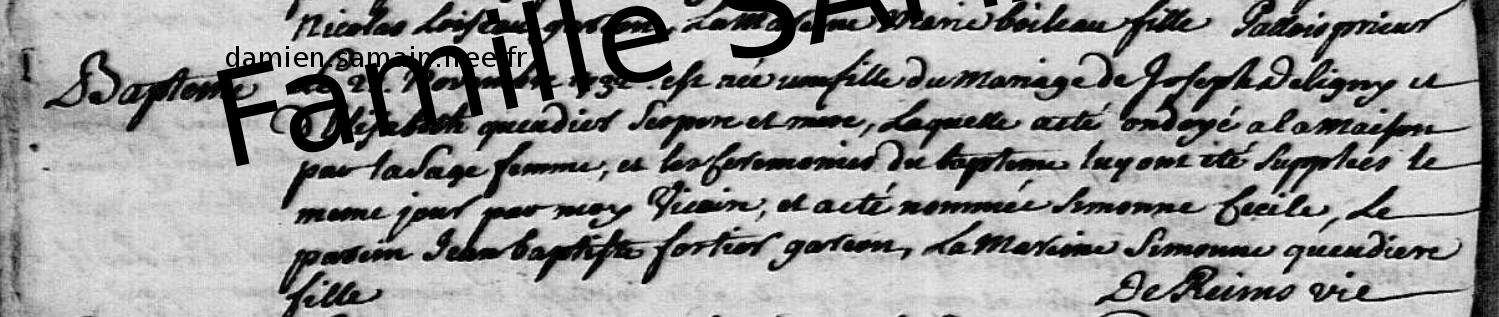 Nicolas Loiseau garçon, La Mareine Marie boileau fille Padois prieur
damien.samain.free.fr
Famille SA
Bapteme Le 2 Novembre est née une fille du Mariage de Joseph Deligny et
Elisabeth quendier Ses pere et mere, Laquelle a eté ondoyé a la Maison
par la Sage femme, et les Ceremonies du bapteme luy ont eté Supplées le
meme jour par moy Vicaire, et a eté nommée Simonne Cecile, Le
parein Jean baptiste fortier garcon, La Mareine Simonne quendiere
fille De Reims vic